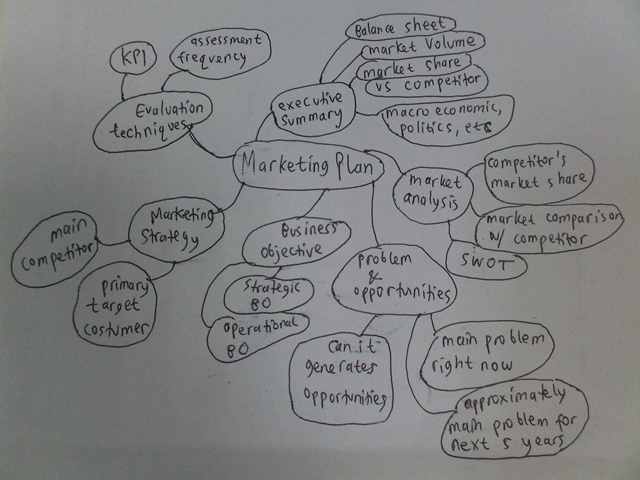 KPI
assessment
frequency
Evaluation
techniques
executive
summary
Balance sheet
market volume
market share
vs competitor
macro economic,
politics, etc
Marketing Plan
market
analysis
competitor's
market share
market comparison
w/ competitor
SWOT
Marketing
Strategy
main
competitor
primary
target
costumer
Business
objective
Strategic
BO
operational
BO
problem
&
opportunities
can it
generates
opportunities
main problem
right now
approximately
main problem for
next 5 years